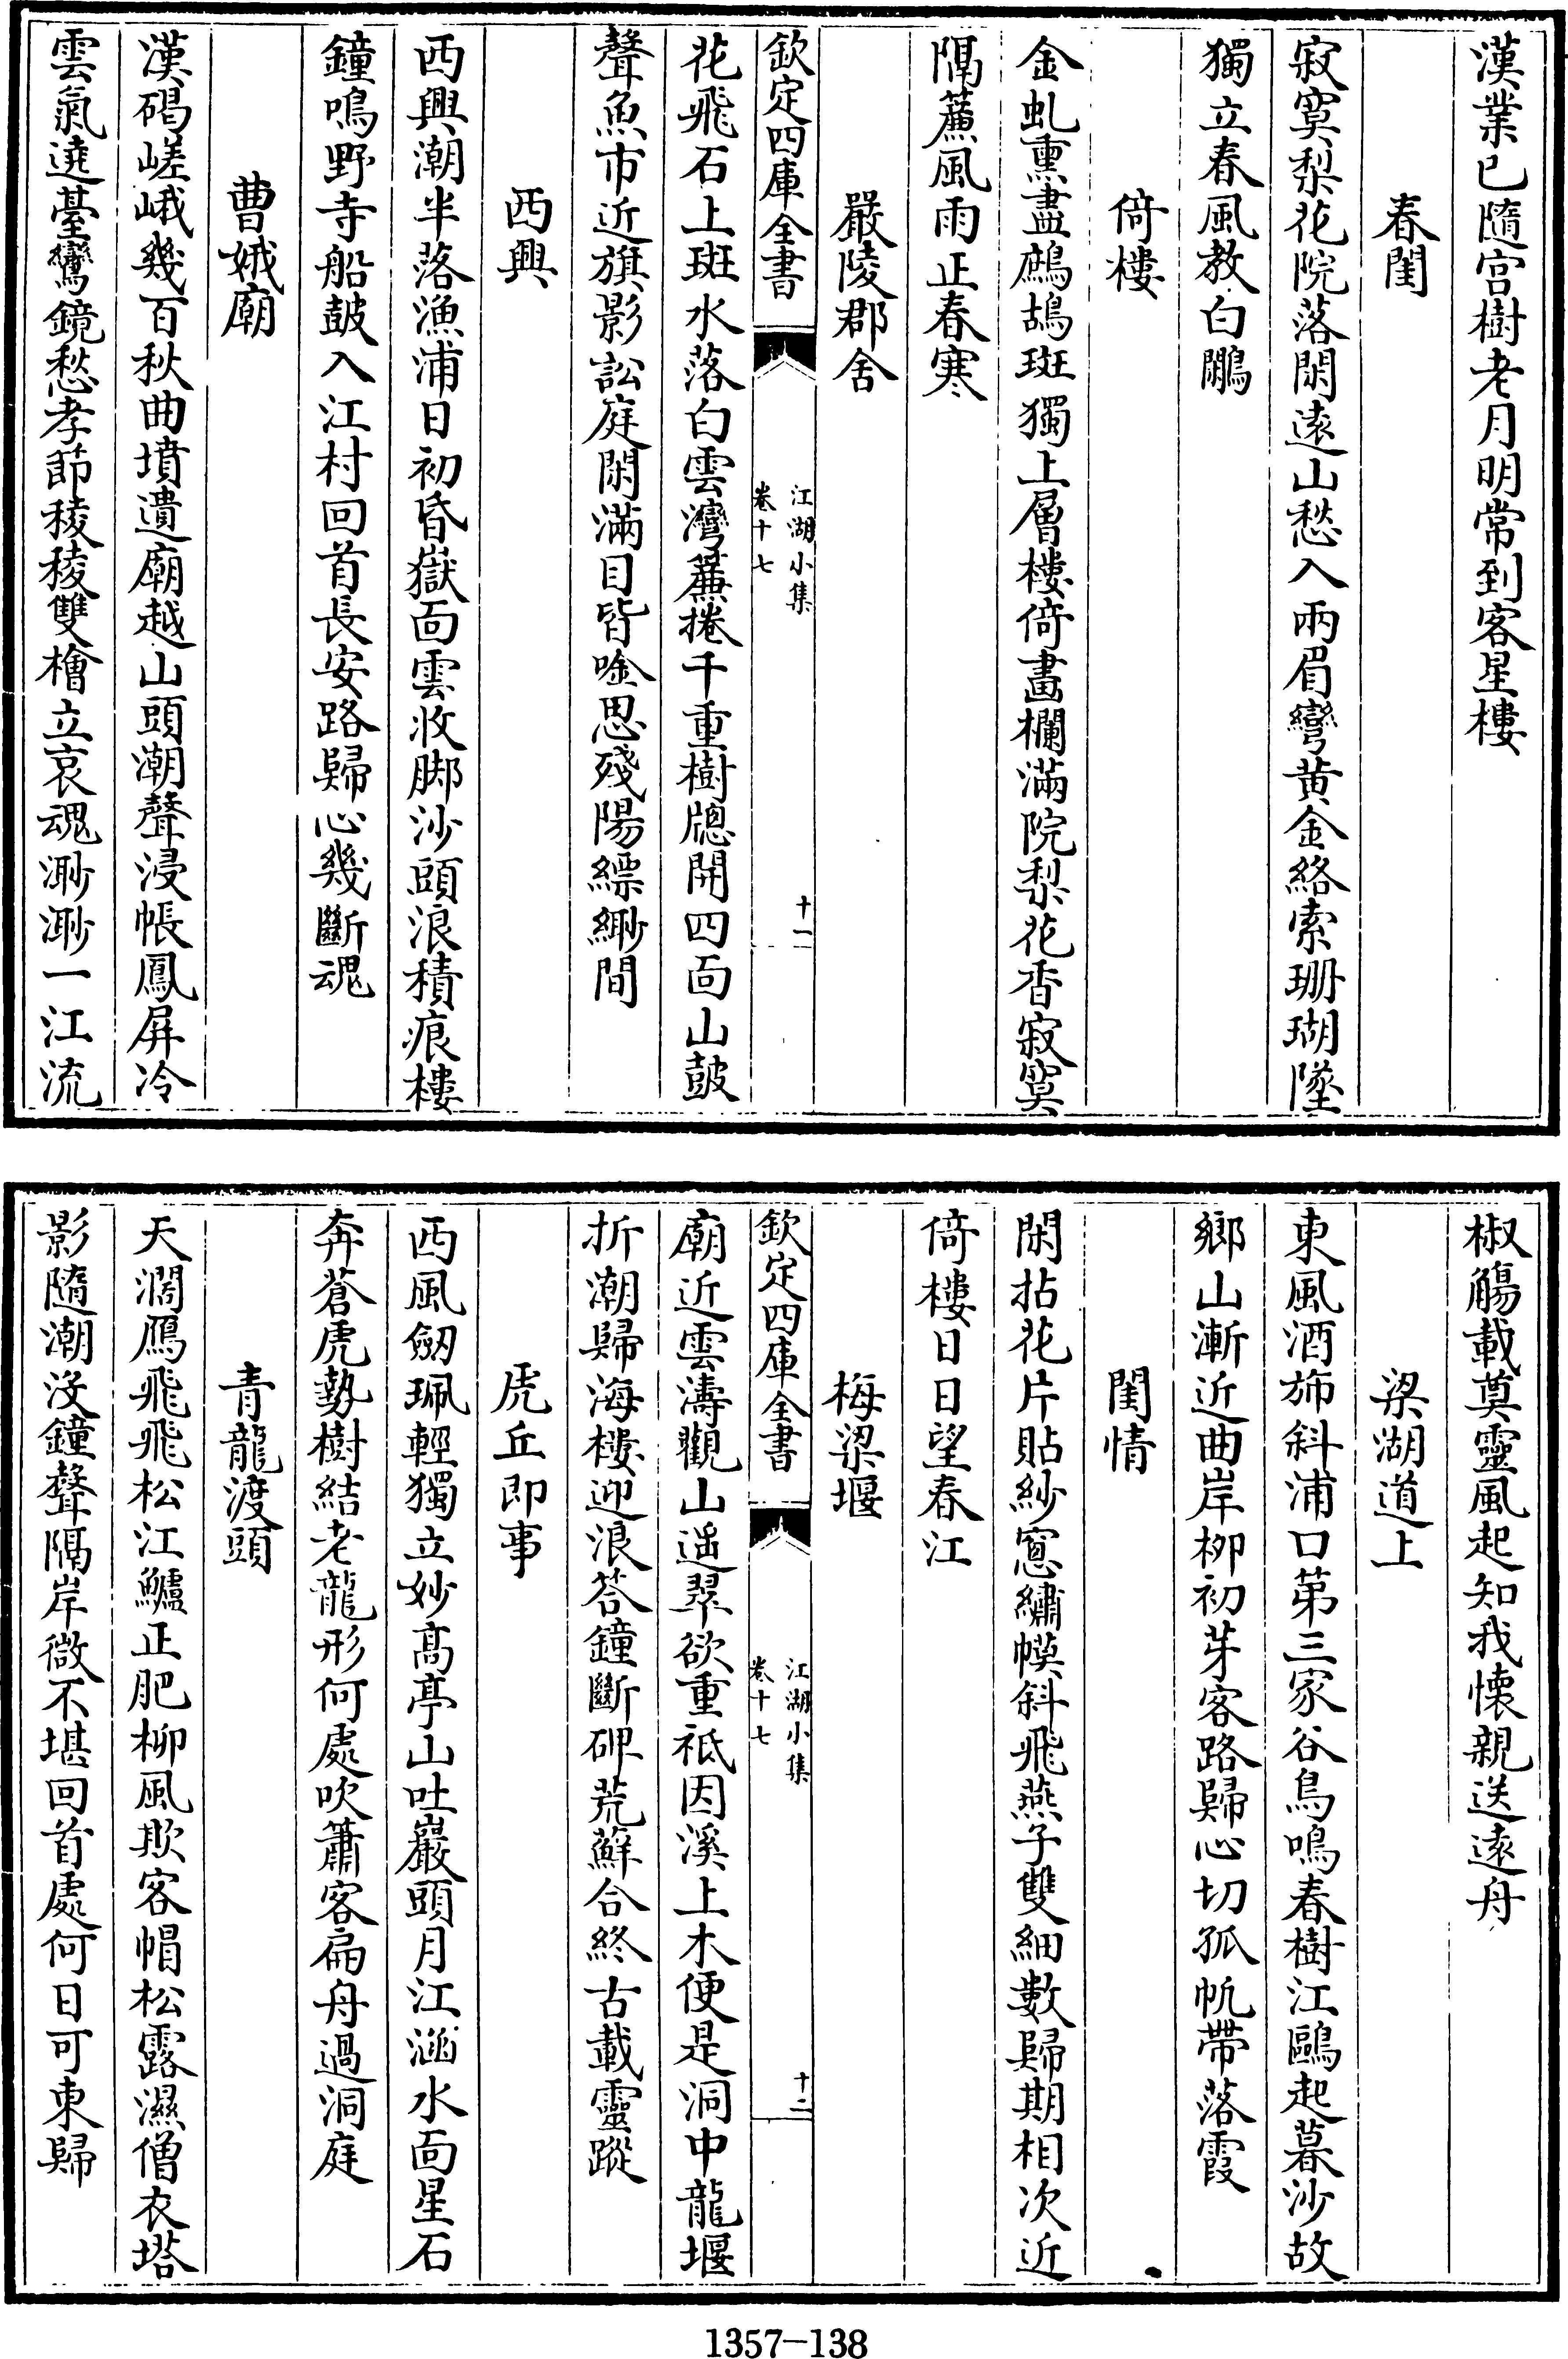 漢業已隨宫樹老月明常到客星樓
春閨
寂寞梨花院落閑遠山愁入兩眉彎黄金絡索珊瑚墜
獨立春風教白鷴
倚樓
金虬熏盡鷓鴣斑獨上層樓倚畫欄滿院梨花香寂寞
隔蔗風雨正春寒
嚴陵郡舍
欽定四庫全書
江湖小集
卷十七
十一
花飛石上斑水落白雲灣簾捲千重樹牕開四面山鼓
聲魚市近旗影訟庭閑滿目皆唫思殘陽縹緲間
西興
西興潮半落漁浦日初昏嶽面雲收脚沙頭浪積痕樓
鐘鳴野寺船鼓入江村回首長安路歸心幾斷魂
曹娥廟
漢碣嵯峨幾百秋曲墳遺廟越山頭潮聲浸帳鳳屏冷
雲氣遶臺鸞鏡愁孝節稜稜雙檜立哀魂渺渺一江流
椒觴載奠靈風起知我懷親送遠舟
梁湖道上
東風酒斾斜浦口第三家谷鳥鳴春樹江鷗起暮沙故
鄉山漸近曲岸柳初芽客路歸心切孤帆帶落霞
閨情
閑拈花片貼紗窻繡幙斜飛燕子雙細數歸期相次近
倚樓日日望春江
梅梁堰
欽定四庫全書
江湖小集
卷十七
十二
廟近雲濤觀山遥翠欲重祗因溪上木便是洞中龍堰
折潮歸海樓迎浪答鐘斷碑荒蘚合終古載靈蹤
虎丘即事
西風劒珮輕獨立妙髙亭山吐巖頭月江涵水面星石
奔蒼虎勢樹結老龍形何處吹簫客扁舟過洞庭
青龍渡頭
天濶鴈飛飛松江鱸正肥柳風欺客帽松露濕僧衣塔
影隨潮没鐘聲隔岸微不堪回首處何日可東歸
1357-138